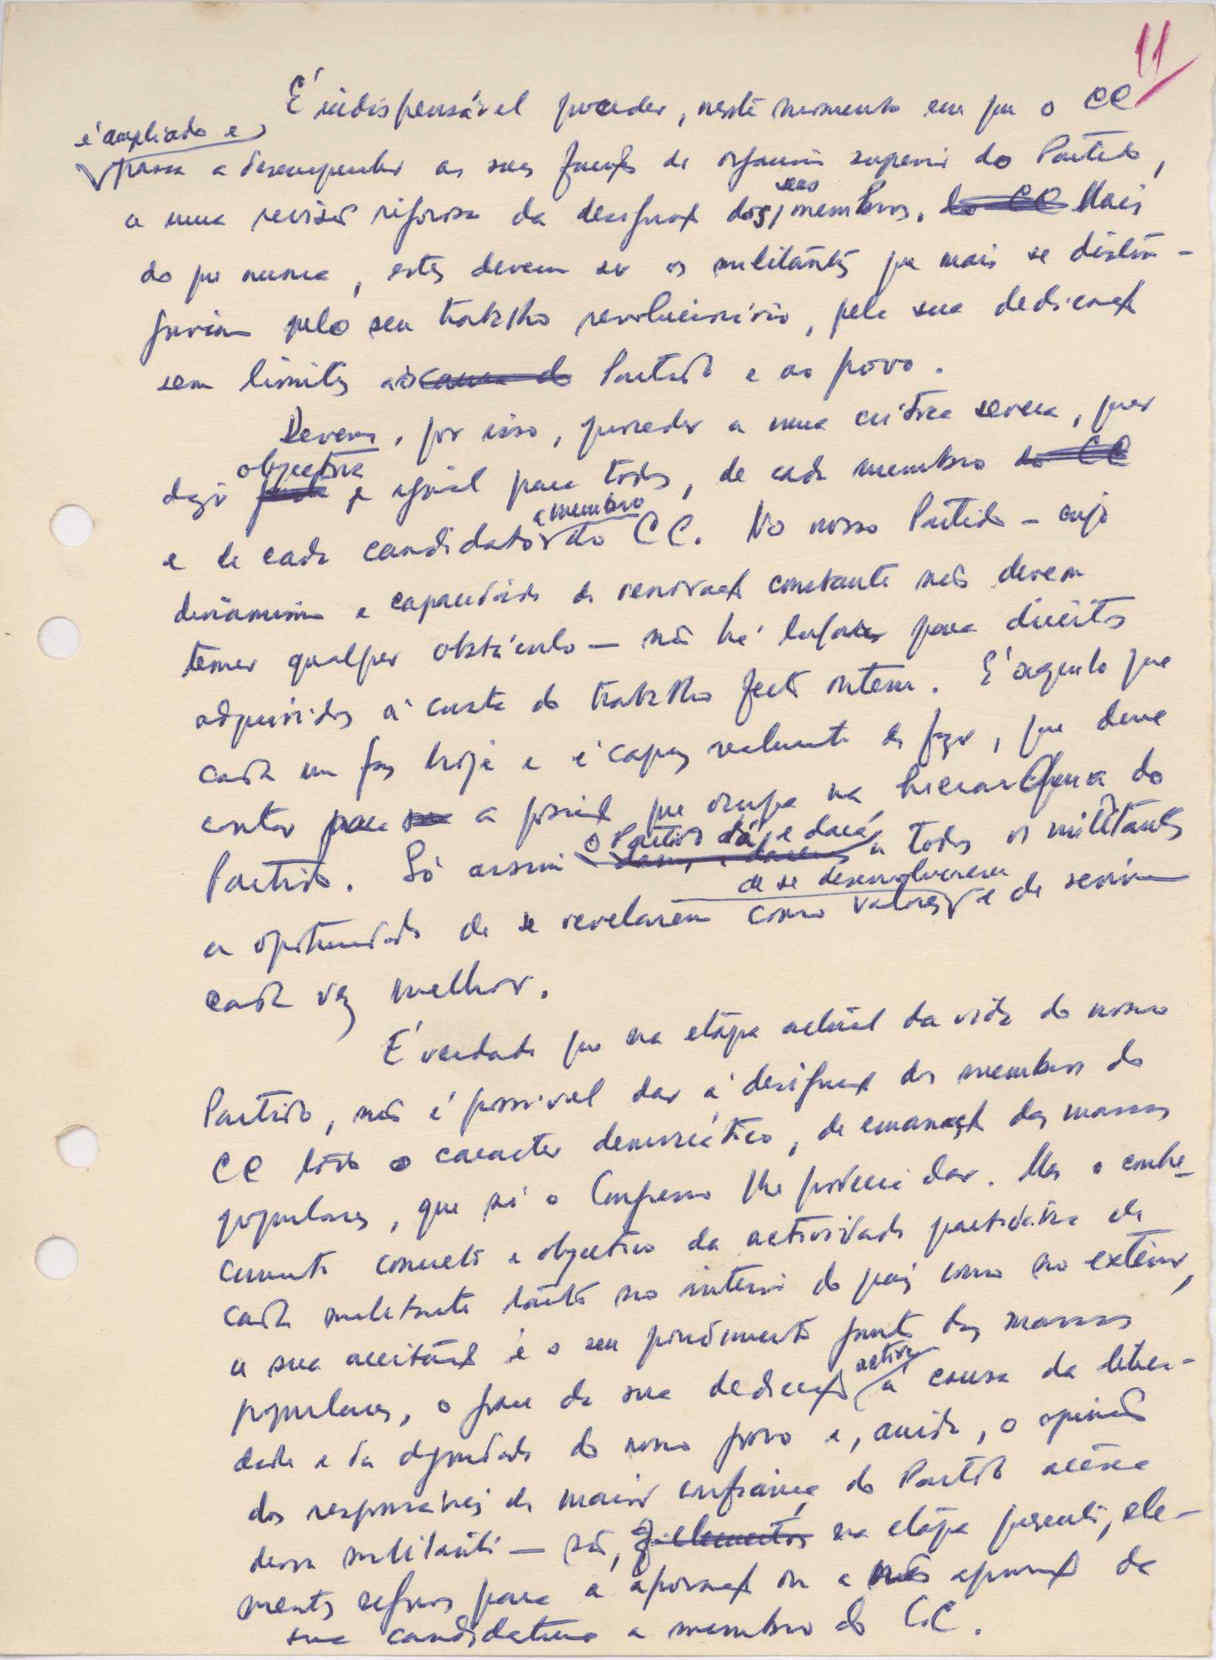 11
É indispensável proceder, neste momento em que o CC
é ampliado e
passa a desempenhar as suas funções de organismo superior do Partido,
a uma revisão rigorosa da designação dos seus membros. do CC Mais
do que nunca, estes devem ser os militantes que mais se distin-
guiram pelo seu trabalho revolucionário, pela sua dedicação
sem limites ao causa do Partido e ao povo.
Devemos, por isso, proceder a uma crítica severa, quer
dizer justa objectiva e igual para todos, de cada membro do CC
e de cada candidato a membro do CC. No nosso Partido — cujo
dinamismo e capacidade de renovação constante não devem
temer qualquer obstáculo — não há lugar para direitos
adquiridos à custa do trabalho feito ontem. É aquilo que
cada um faz hoje e é capaz realmente de fazer, que deve
contar para a posição que ocupa na hierarquia do
Partido. Só assim o Partido dá e dará a todos os militantes
a oportunidade de se revelarem como valores, de se desenvolverem e de servirem
cada vez melhor.
É verdade que na etapa actual da vida do nosso
Partido, não é possível dar à designação dos membros do
CC todo o caracter democrático, de emanação das massas
populares, que só o Congresso lhe poderia dar. Mas o conhe-
cimento concreto e objectivo da actividade partidária de
cada militante tanto no interior do país como no exterior,
a sua aceitação e o seu junto das massas
populares, o grau da sua dedicação activa à causa da liber-
dade e da dignidade do nosso povo e, ainda, a opinião
dos responsáveis de maior confiança do Partido acerca
desse militante — são, elementos na etapa presente, ele-
mentos seguros para a aprovação ou a não aprovação da
sua candidatura a membro do CC.